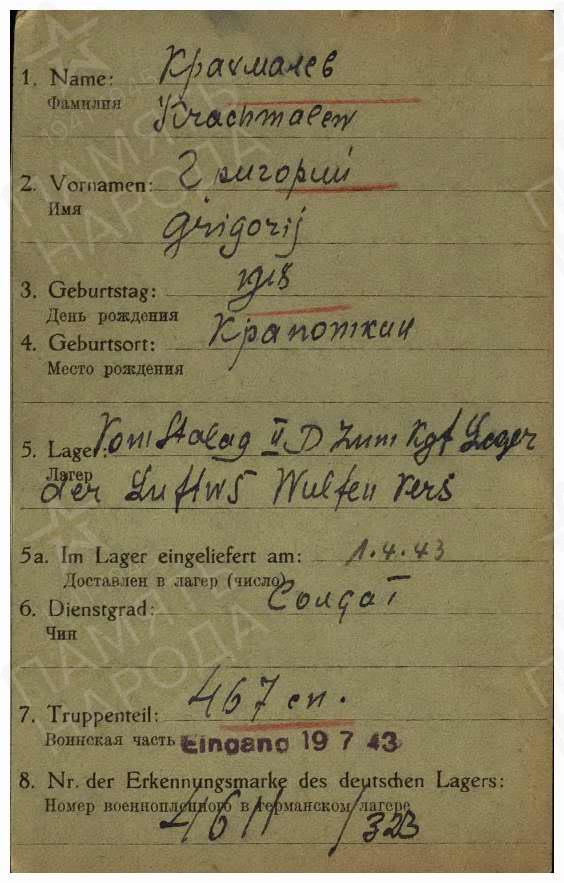 Крахмалев
1. Name:
Фамилия
Krachmalew
2. Vornamen: Григорий
Имя
Grigorij
3. Geburtstag: 1918
День рождения
4. Geburtsort: Крапоткин
Место рождения
5. Lager: Vom Stalag II D zum Kgf Lager
Лагер
der Luftw 5 Wulfen vers
5a. Im Lager eingeliefert am: 1.4.43
Доставлен в лагер (число)
6. Dienstgrad: Солдат
Чин
7. Truppenteil: 467 сп.
Воинская часть Eingang 19 7 43
8. Nr. der Erkennungsmarke des deutschen Lagers:
Номер военнопленного в германском лагере
4611/323
ПАМЯТЬ
НАРОДА